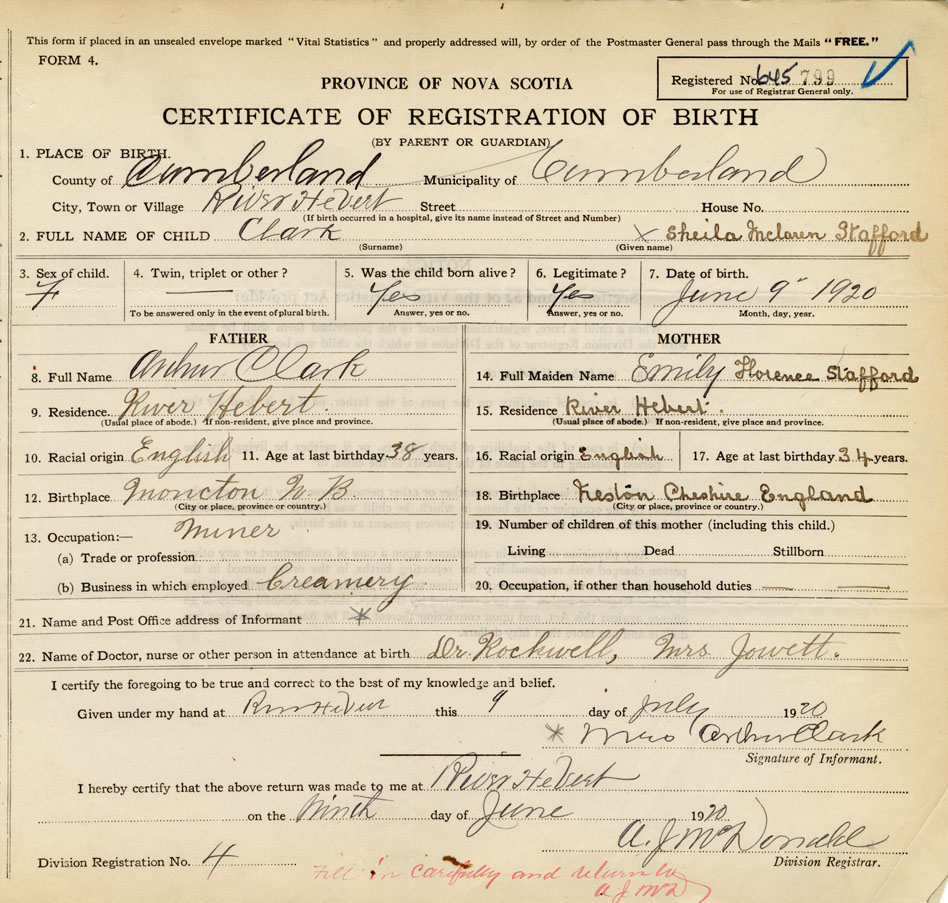 This form if placed in an unsealed envelope marked "Vital Statistics" and properly addressed will, by order of the Postmaster General pass through the Mails "FREE."
FORM 4.
Registered No. 645 799
For use of Registrar General only.
PROVINCE OF NOVA SCOTIA
CERTIFICATE OF REGISTRATION OF BIRTH
(BY PARENT OR GUARDIAN)
1. PLACE OF BIRTH.
County of Cumberland Municipality of Cumberland
City, Town or Village River Hebert Street House No.
(If birth occurred in a hospital, give its name instead of Street and Number)
2. FULL NAME OF CHILD Clark x Sheila Mclaren Stafford
(Surname) (Given name)
3. Sex of child. 4. Twin, triplet or other? 5. Was the child born alive? 6. Legitimate? 7. Date of birth.
F — Yes Yes June 9 1920
To be answered only in the event of plural birth. Answer, yes or no. Answer, yes or no. Month, day, year.
FATHER MOTHER
8. Full Name Arthur Clark 14. Full Maiden Name Emily Florence Stafford
9. Residence River Hebert. 15. Residence River Hebert.
(Usual place of abode.) If non-resident, give place and province. (Usual place of abode.) If non-resident, give place and province.
10. Racial origin English 11. Age at last birthday 38 years. 16. Racial origin English 17. Age at last birthday 34 years.
12. Birthplace Moncton N B 18. Birthplace Neston Cheshire England
(City or place, province or country.) (City or place, province or country.)
13. Occupation:— Miner 19. Number of children of this mother (including this child.)
(a) Trade or profession Living Dead Stillborn
(b) Business in which employed Creamery. 20. Occupation, if other than household duties —
21. Name and Post Office address of Informant *
22. Name of Doctor, nurse or other person in attendance at birth Dr. Rockwell, Mrs Jowett.
I certify the foregoing to be true and correct to the best of my knowledge and belief.
Given under my hand at River Hebert this 9 day of July 1920
* Mrs Arthur Clark
Signature of Informant.
I hereby certify that the above return was made to me at River Hebert
on the Ninth day of June 1920
A. J. McDonald
Division Registrar.
Division Registration No. 4
Fill in carefully and return to
A. J. McD